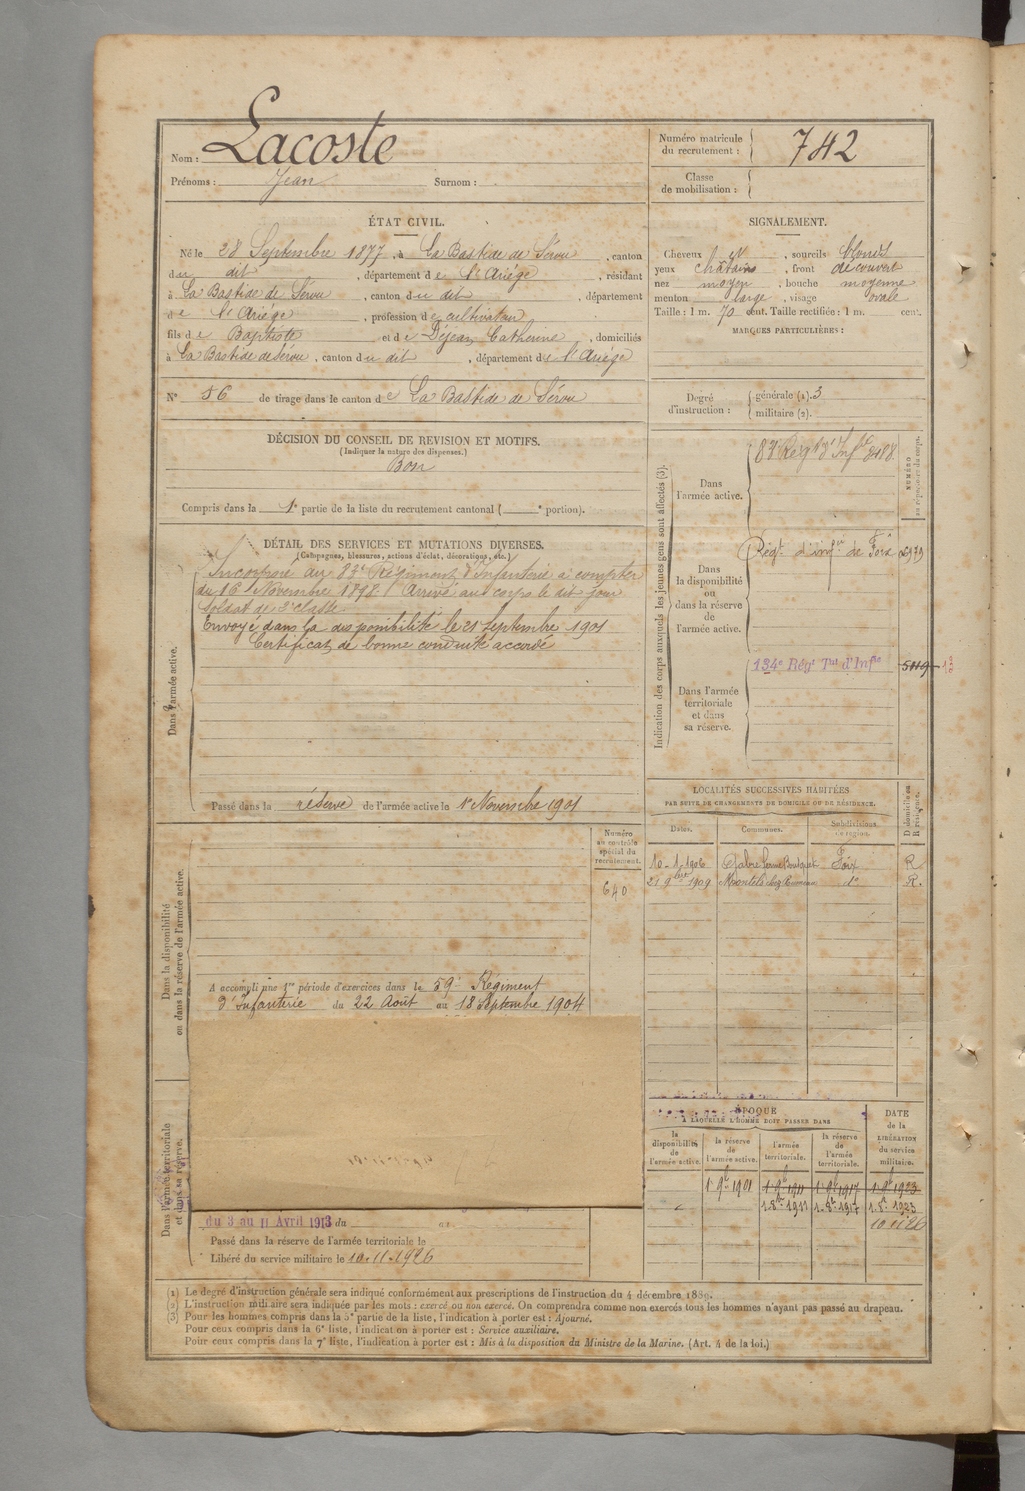 Nom : Lacoste
Prénoms : Jean Surnom :
Numéro matricule du recrutement : 742
Classe de mobilisation :
ÉTAT CIVIL.
Né le 28 Septembre 1877, à La Bastide de Sérou, canton
du dit, département de l'Ariége, résidant
à La Bastide de Sérou, canton du dit, département
de l'Ariége, profession de cultivateur
fils de Baptiste et de Déjean Catherine, domiciliés
à La Bastide de Sérou, canton du dit, département de l'Ariége
N° 56 de tirage dans le canton de La Bastide de Sérou
SIGNALEMENT.
Cheveux et, sourcils blonds
yeux châtains, front découvert
nez moyen, bouche moyenne
menton large, visage ovale
Taille : 1 m. 70 cent. Taille rectifiée : 1 m. cent.
MARQUES PARTICULIÈRES :
Degré d'instruction : générale (1). 3
militaire (2).
DÉCISION DU CONSEIL DE REVISION ET MOTIFS.
(Indiquer la nature des dispenses.)
Bon
Compris dans la 1e partie de la liste du recrutement cantonal ( e portion).
DÉTAIL DES SERVICES ET MUTATIONS DIVERSES.
(Campagnes, blessures, actions d'éclat, décorations, etc.)
Dans l'armée active.
Incorporé au 83e Régiment d'Infanterie à compter
du 16 Novembre 1898. Arrivé au corps le dit jour
soldat de 2e classe.
Envoyé dans la disponibilité le 21 Septembre 1901
Certificat de bonne conduite accordé
Passé dans la réserve de l'armée active le 1er Novembre 1901
Indication des corps auxquels les jeunes gens sont affectés (3).
NUMÉRO au répertoire du corps.
Dans l'armée active.
83e Régt d'Infie 3188
Dans la disponibilité ou dans la réserve de l'armée active.
Régt d'infie de Foix 2979
Dans l'armée territoriale et dans sa réserve.
134e Régt Tal d'Infie 5119
LOCALITÉS SUCCESSIVES HABITÉES
PAR SUITE DE CHANGEMENTS DE DOMICILE OU DE RÉSIDENCE.
Dates. Communes. Subdivisions de région. D domicile ou R résidence.
10-1-1906 Gabre ferme Bousquet Foix R
21 9bre 1909 Montels chez do R.
Dans la disponibilité ou dans la réserve de l'armée active.
Numéro au contrôle spécial du recrutement.
640
A accompli une 1re période d'exercices dans le 59e Régiment
d'Infanterie du 22 Août au 18 Septembre 1904
Dans l'armée territoriale et dans sa réserve.
du 3 au 11 Avril 1913 du au
Passé dans la réserve de l'armée territoriale le
Libéré du service militaire le 10-11-1926
ÉPOQUE
A LAQUELLE L'HOMME DOIT PASSER DANS
DATE de la LIBÉRATION du service militaire.
la disponibilité de l'armée active. la réserve de l'armée active. l'armée territoriale. la réserve de l'armée territoriale.
1. 9b 1901 1. 9b 1911 1. 9b 1917 1. 9b 1923
1. 8bre 1911 1. 8bre 1917 1. 8bre 1923
10 11 26
(1) Le degré d'instruction générale sera indiqué conformément aux prescriptions de l'instruction du 4 décembre 1889.
(2) L'instruction militaire sera indiquée par les mots : exercé ou non exercé. On comprendra comme non exercés tous les hommes n'ayant pas passé au drapeau.
(3) Pour les hommes compris dans la 5e partie de la liste, l'indication à porter est : Ajourné.
Pour ceux compris dans la 6e liste, l'indication à porter est : Service auxiliaire.
Pour ceux compris dans la 7e liste, l'indication à porter est : Mis à la disposition du Ministre de la Marine. (Art. 4 de la loi.)